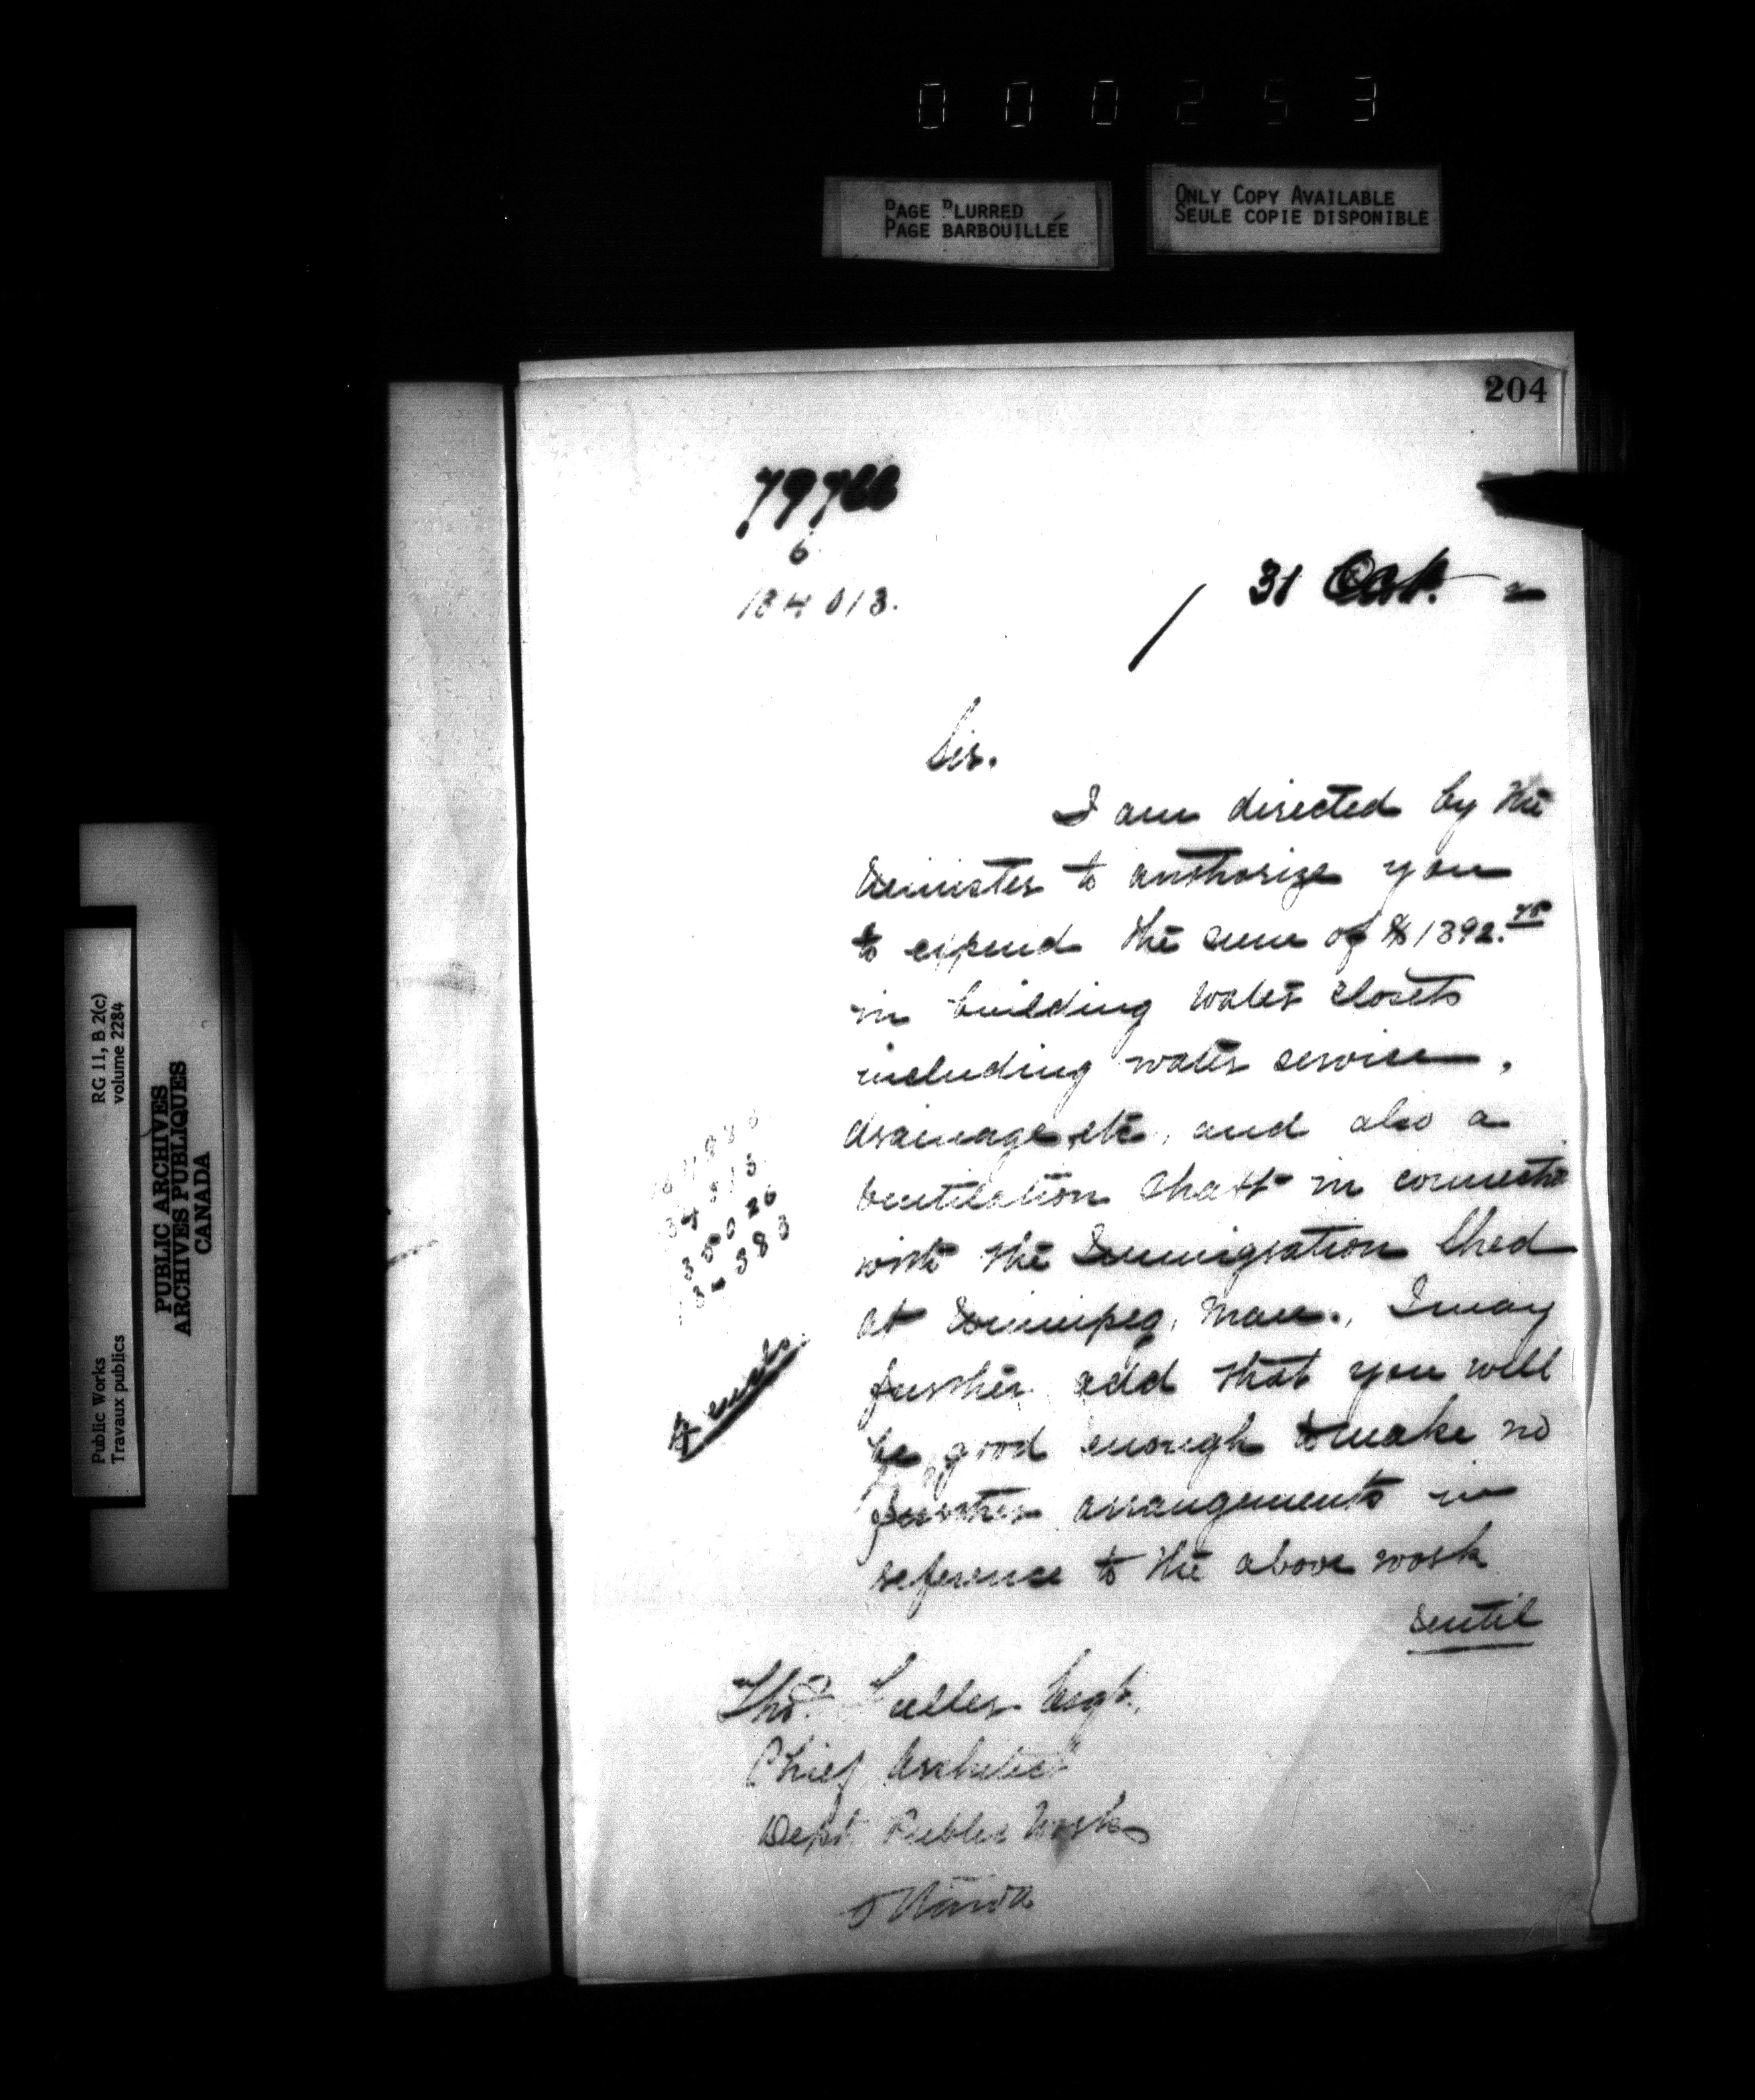 000253
PAGE BLURRED
PAGE BARBOUILLÉE
ONLY COPY AVAILABLE
SEULE COPIE DISPONIBLE
204
6
134013.
31 Oct.
Sir.
I am directed by the
Minister to authorize you
to expend the sum of $1392.
in building water closets
including water service,
drainage, etc, and also a
ventilation shaft in connectio
with the Immigration Shed
at Winnipeg, Man., I may
further add that you will
be good enough to make no
further arrangements in
reference to the above work
until
4 encls.
Thos. Fuller Esqr.
Chief Architect
Dept. Public Works
Ottawa
RG 11, B 2(c)
volume 2284
Public Works
Travaux publics
PUBLIC ARCHIVES
ARCHIVES PUBLIQUES
CANADA